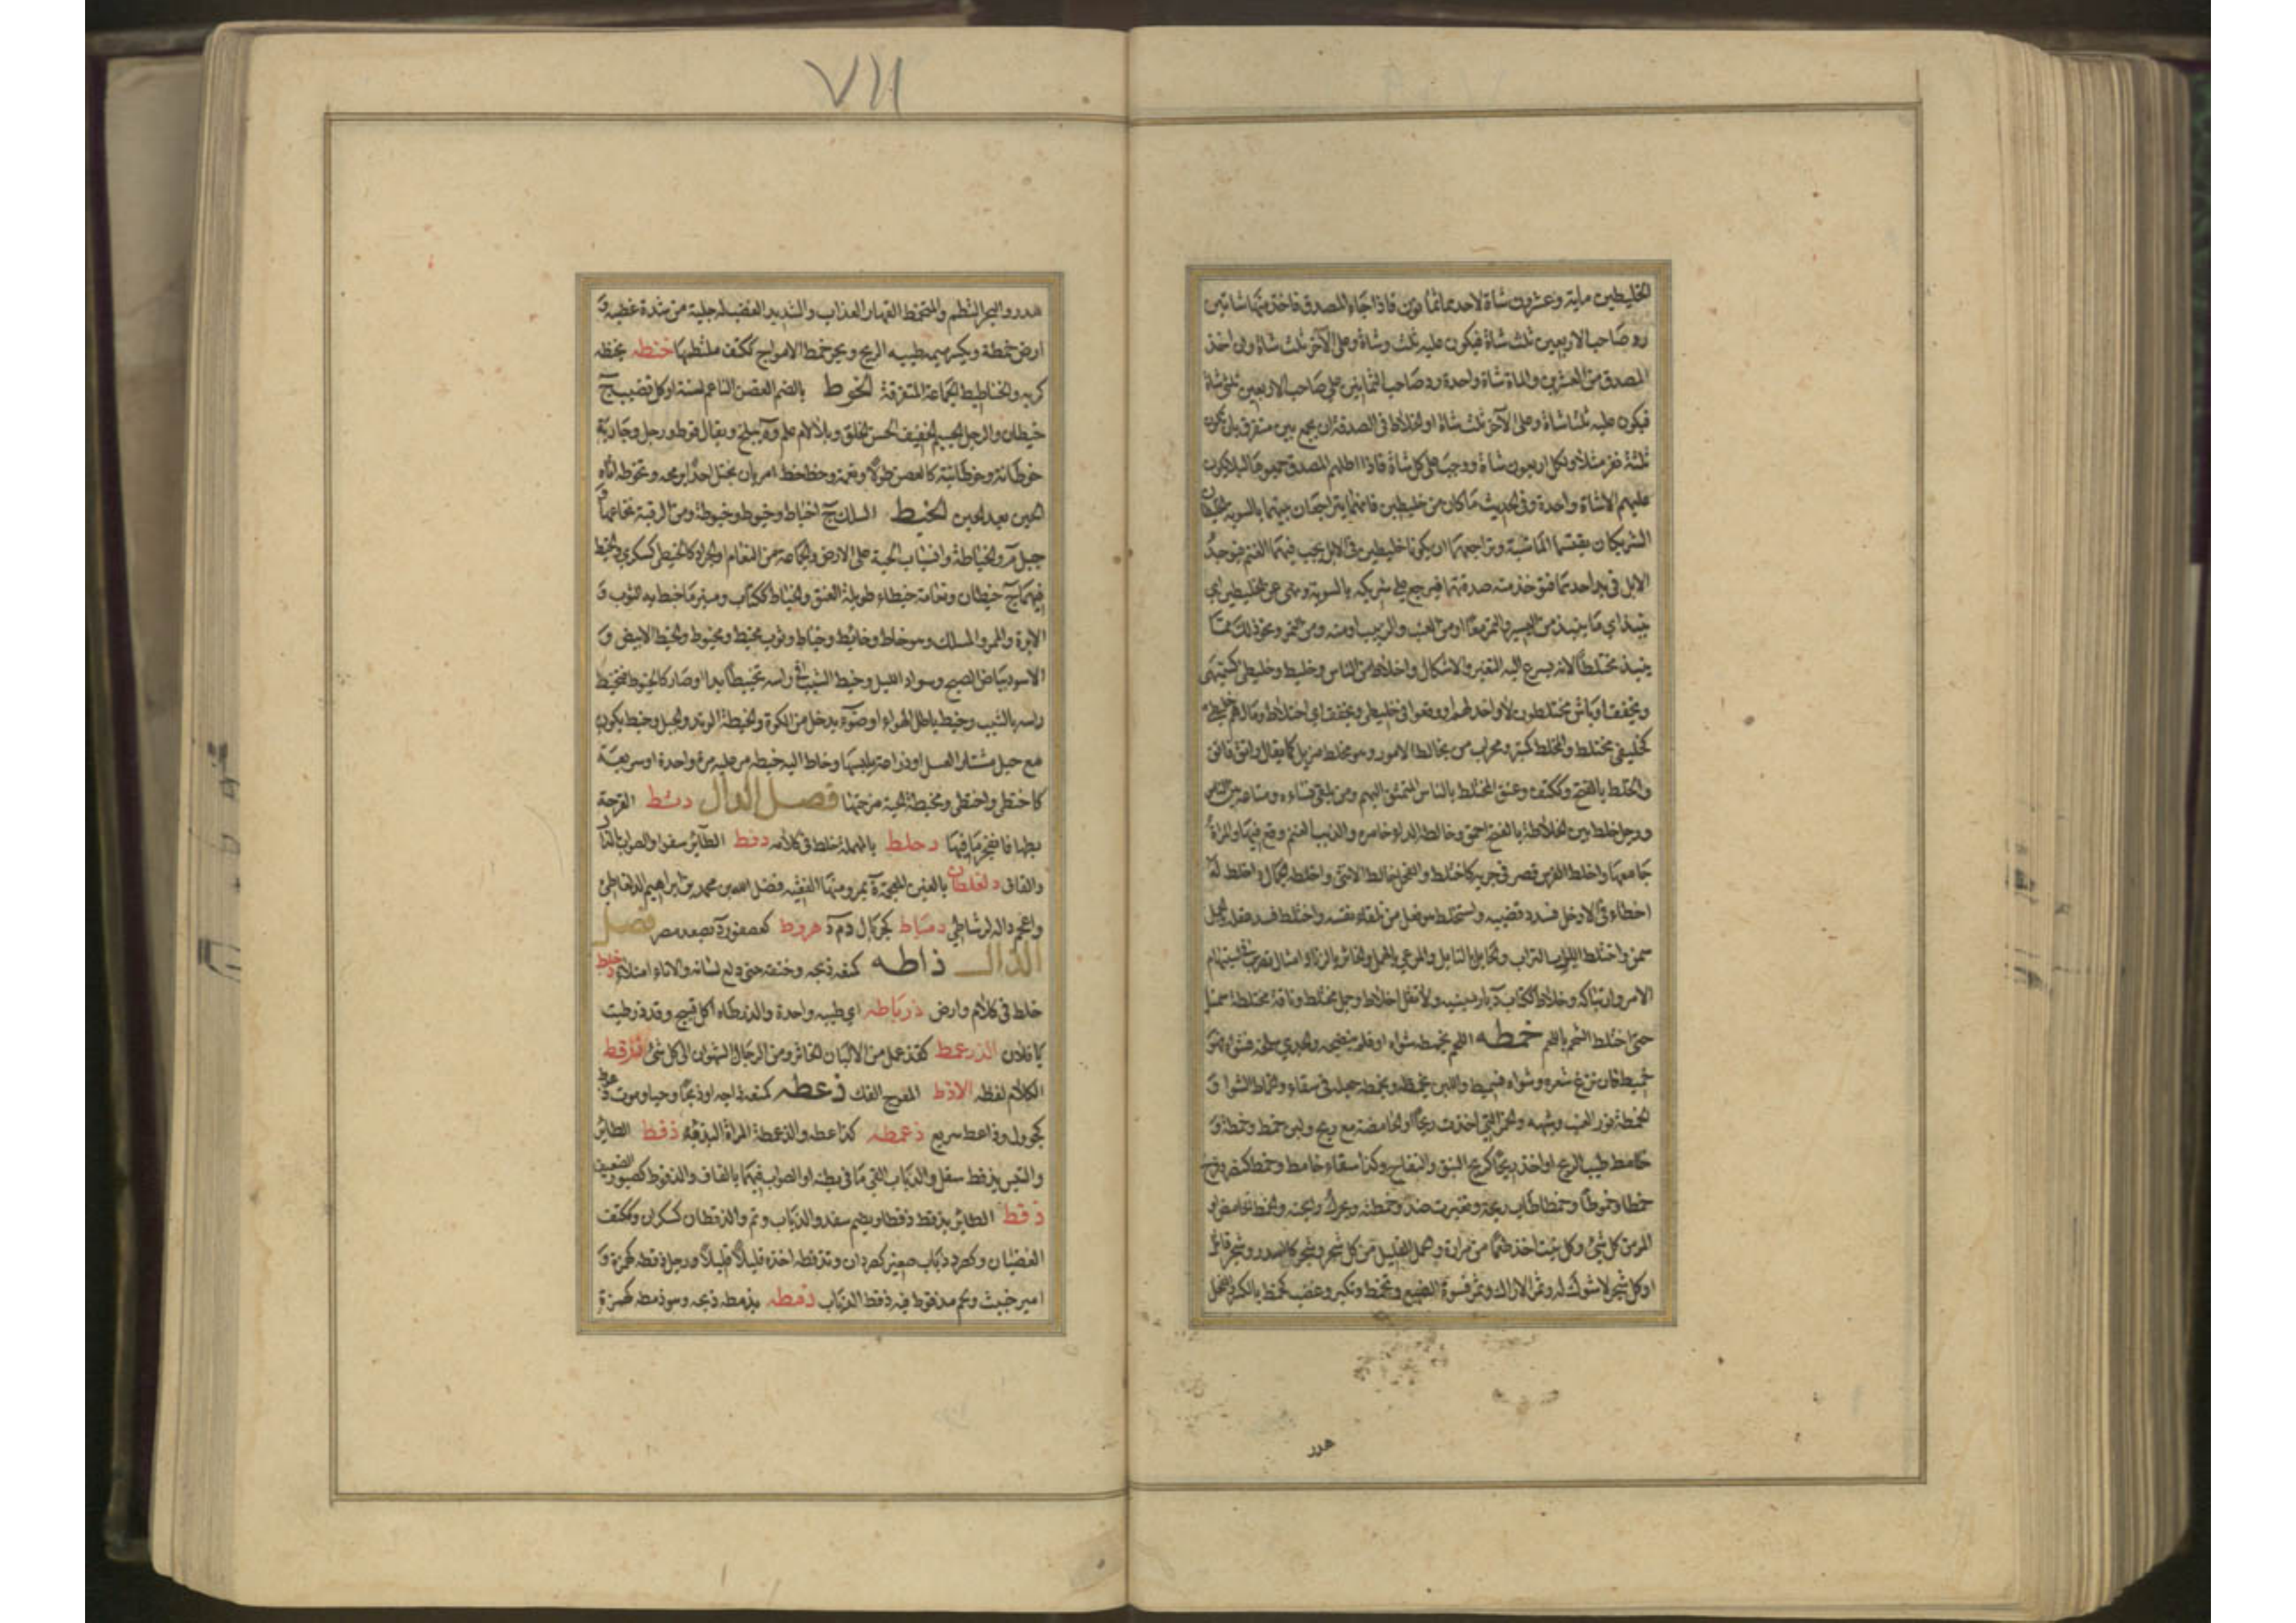 الخليطين ماية وعشرون شاة لاحدهما ثمانون فاذا جاء المصدق فاخذ منها شاتين
رد صاحب الاربعين ثلث شاة فيكون عليه ثلث وشاة وعلى الآخر ثلث شاة وان اخذ
المصدق من العشرين والماة شاة واحدة رد صاحب الثمانين على صاحب الاربعين ثلث شاة
فيكون عليه ثلثا شاة وعلى الآخر ثلث شاة او الخلاط فى الصدقة ان يجمع بين متفرق بان يكون
ثلثة نفر مثلا ولكل اربعون شاة ووجب على كل شاة فاذا اظلهم المصدق جمعوها لكيلا يكون
عليهم الا شاة واحدة وفى الحديث ما كان من خليطين فانهما يتراجعان بينهما بالسوية الخليطان
الشريكان لم يقتسما الماشية وتراجعهما ان يكونا خليطين فى الابل يجب فيها الغنم فتوجد
الابل فى يد احدهما فتؤخذ منه صدقتها فيرجع على شريكه بالسوية ونهى عن الخليطين اي
ينبذ اي ما ينبذ من البسر والتمر معا او من العنب والزبيب او منه ومن التمر ونحو ذلك مما
ينبذ مختلطا لانه يسرع اليه التغير والاسكار واخلاط من الناس وخليط وخليطى كسميهى
ويخفف اوباش مختلطون لا واحد لهم ووقعوا فى خليطى ويخفف اي اختلاط ومالهم خليطى
كخليفى مختلط والمخلط كمنبر ومحراب من يخالط الامور وهو مخلط مزيل كما يقال راتق فاتق
والخلط بالفتح وككتف وعنق المختلط بالناس المتملق اليهم ومن يلقى نساءه ومتاعه بين الناس
ورجل خلط بين الخلاطة بالفتح احمق وخالطه الداء خامره والذئب الغنم وقع فيها والمراة
جامعها واخلط الفرس قصر فى جريه كاختلط والفحل خالط الانثى واخلطه الجمال واخلط له
اخطاء فى الادخال فسدد قضيبه واستخلط هو فعل من تلقاء نفسه واختلط فسد عقله والجمل
سمن واختلط الليل بالتراب والحابل بالنابل والمرعى بالهمل والخاثر بالزباد امثال تضرب فى استبهام
الامر وارتباكه وخلاط ككتاب د بارمينية ولا تقل اخلاط وجمل مختلط وناقة مختلطة سمنا
حتى اختلط الشحم باللحم خمطه اللحم يخمطه شواه او فلم ينضجه والجدي سلخه فشواه فهو
خميط فان نزع شعره وشواه فسميط واللبن يخمطه ويخمطه جعله فى سقاء والخماط الشواء و
الخمطة نور العنب وشبهه والخمر التي اخذت ريحا او الحامضة مع ريح ولبن خمط وخمطة و
خامط طيب الريح او اخذ ريحا كريح النبق والتفاح وكذا سقاء خامط وخمط كنصر وفرح
خمطا وخموطا وخمطا طاب ريحه وتغيرت ضد وخمطته ويحرك رايحته والخمط الحامض او
المر من كل شئ وكل نبت اخذ طعما من مرارة والحمل القليل من كل شجر وشجر كالسدر وشجر قاتل
او كل شجر لا شوك له وثمر الاراك وثمر فسوة الضبع وتخمط وتكبر وغضب كخمط بالكسر والفحل
هدر
٧١١
هدر والبحر التطم والمتخمط القهار الغلاب والشديد الغضب له جلبة من شدة غضبه و
ارض خمطة وبكسر ميمه طيبة الريح وبحر خمط الامواج ككتف ملتطمها خنطه يخنطه
كربه والخناطيط الجماعة المتفرقة الخوط بالضم الغصن الناعم لسنة او كل قضيب ج
خيطان والرجل الجسيم الخفيف الحسن الخلق وبلا لام علم و ة ببلخ ويقال قوط ورجل وجارية
خوطانة وخوطانية كالغصن طولا ونعمة وخط خط امر بان يختل احدا برمحه وتخوطه اتاه
الحين بعد الحين الخيط السلك ج اخياط وخيوط وخيوطة ومن الرقبة نخاعها و
جبل م والخياطة وانسياب الحية على الارض والجماعة من النعام او الجراد كالخيطى كسكرى والخيط
فيهما ج خيطان ونعامة خيطاء طويلة العنق والخياط ككتاب ومنبر ما خيط به الثوب و
الابرة والممر والمسلك وهو خاط وخائط وخياط وثوب مخيط ومخيوط والخيط الابيض و
الاسود بياض الصبح وسواد الليل وخيط الشيب فى راسه تخييطا بدا او صار كالخيوط فتخيط
راسه بالشيب وخيط باطل الهواء او ضوء يدخل من الكوة والخيطة الوتد والحبل وخيط يكون
مع حبل مشتار العسل او دراعة يلبسها وخاط اليه خيطة مر عليه مرة واحدة او سريعة
كاختطى واختطى ومخيط الحية مزحفها فصل الدال دثط القرحة
بطها فانفجر ما فيها دحلط بالمهملة خلط فى كلامه دفط الطائر سفد او الصواب بالذال
والقاف دلغطان بالغين المعجمة ة بمرو منها الفقيه فضل الله بن محمد بن ابراهيم الدلغاطى
واعجم داله الرشاطى دمياط كجريال د م دهروط كعصفور د بصعيد مصر فصل
الذال ذاطه كمنعه ذبحه وخنقه حتى دلع لسانه والاناء امتلاء ذحلط
خلط فى كلامه وارض ذرباطة اي طيبة واحدة والذرطاه اكل قبيح وقد ذرطيت
يا فلان الذرعمط كقذعمل من الالبان الخاثر ومن الرجال الشهوان الى كل شئ ذرقط
الكلام لفظه الاذط المعوج الفك ذعطه كمنعه ذبحه او ذبحا وحيا وموت ذعوط
كجرول وذاعط سريع ذعمطه كذاعطه والذعمطة المراة البذية ذفط الطائر
والتيس يذفط سفد والذباب القى ما فى بطنه او الصواب فيهما بالقاف والذفوط كصبور الضعيف
ذقط الطائر يذقط ذقطا ويضم سفد والذباب ونم والذقطان كسكران وككتف
الغضبان وكصرد ذباب صغير كصردان وتذقطه اخذه قليلا قليلا ورجل ذقطة كهمزة و
امير خبيث ولحم مذقوط فيه ذقط الذباب ذمطه يذمطه ذبحه وهو ذمطة كهمزة